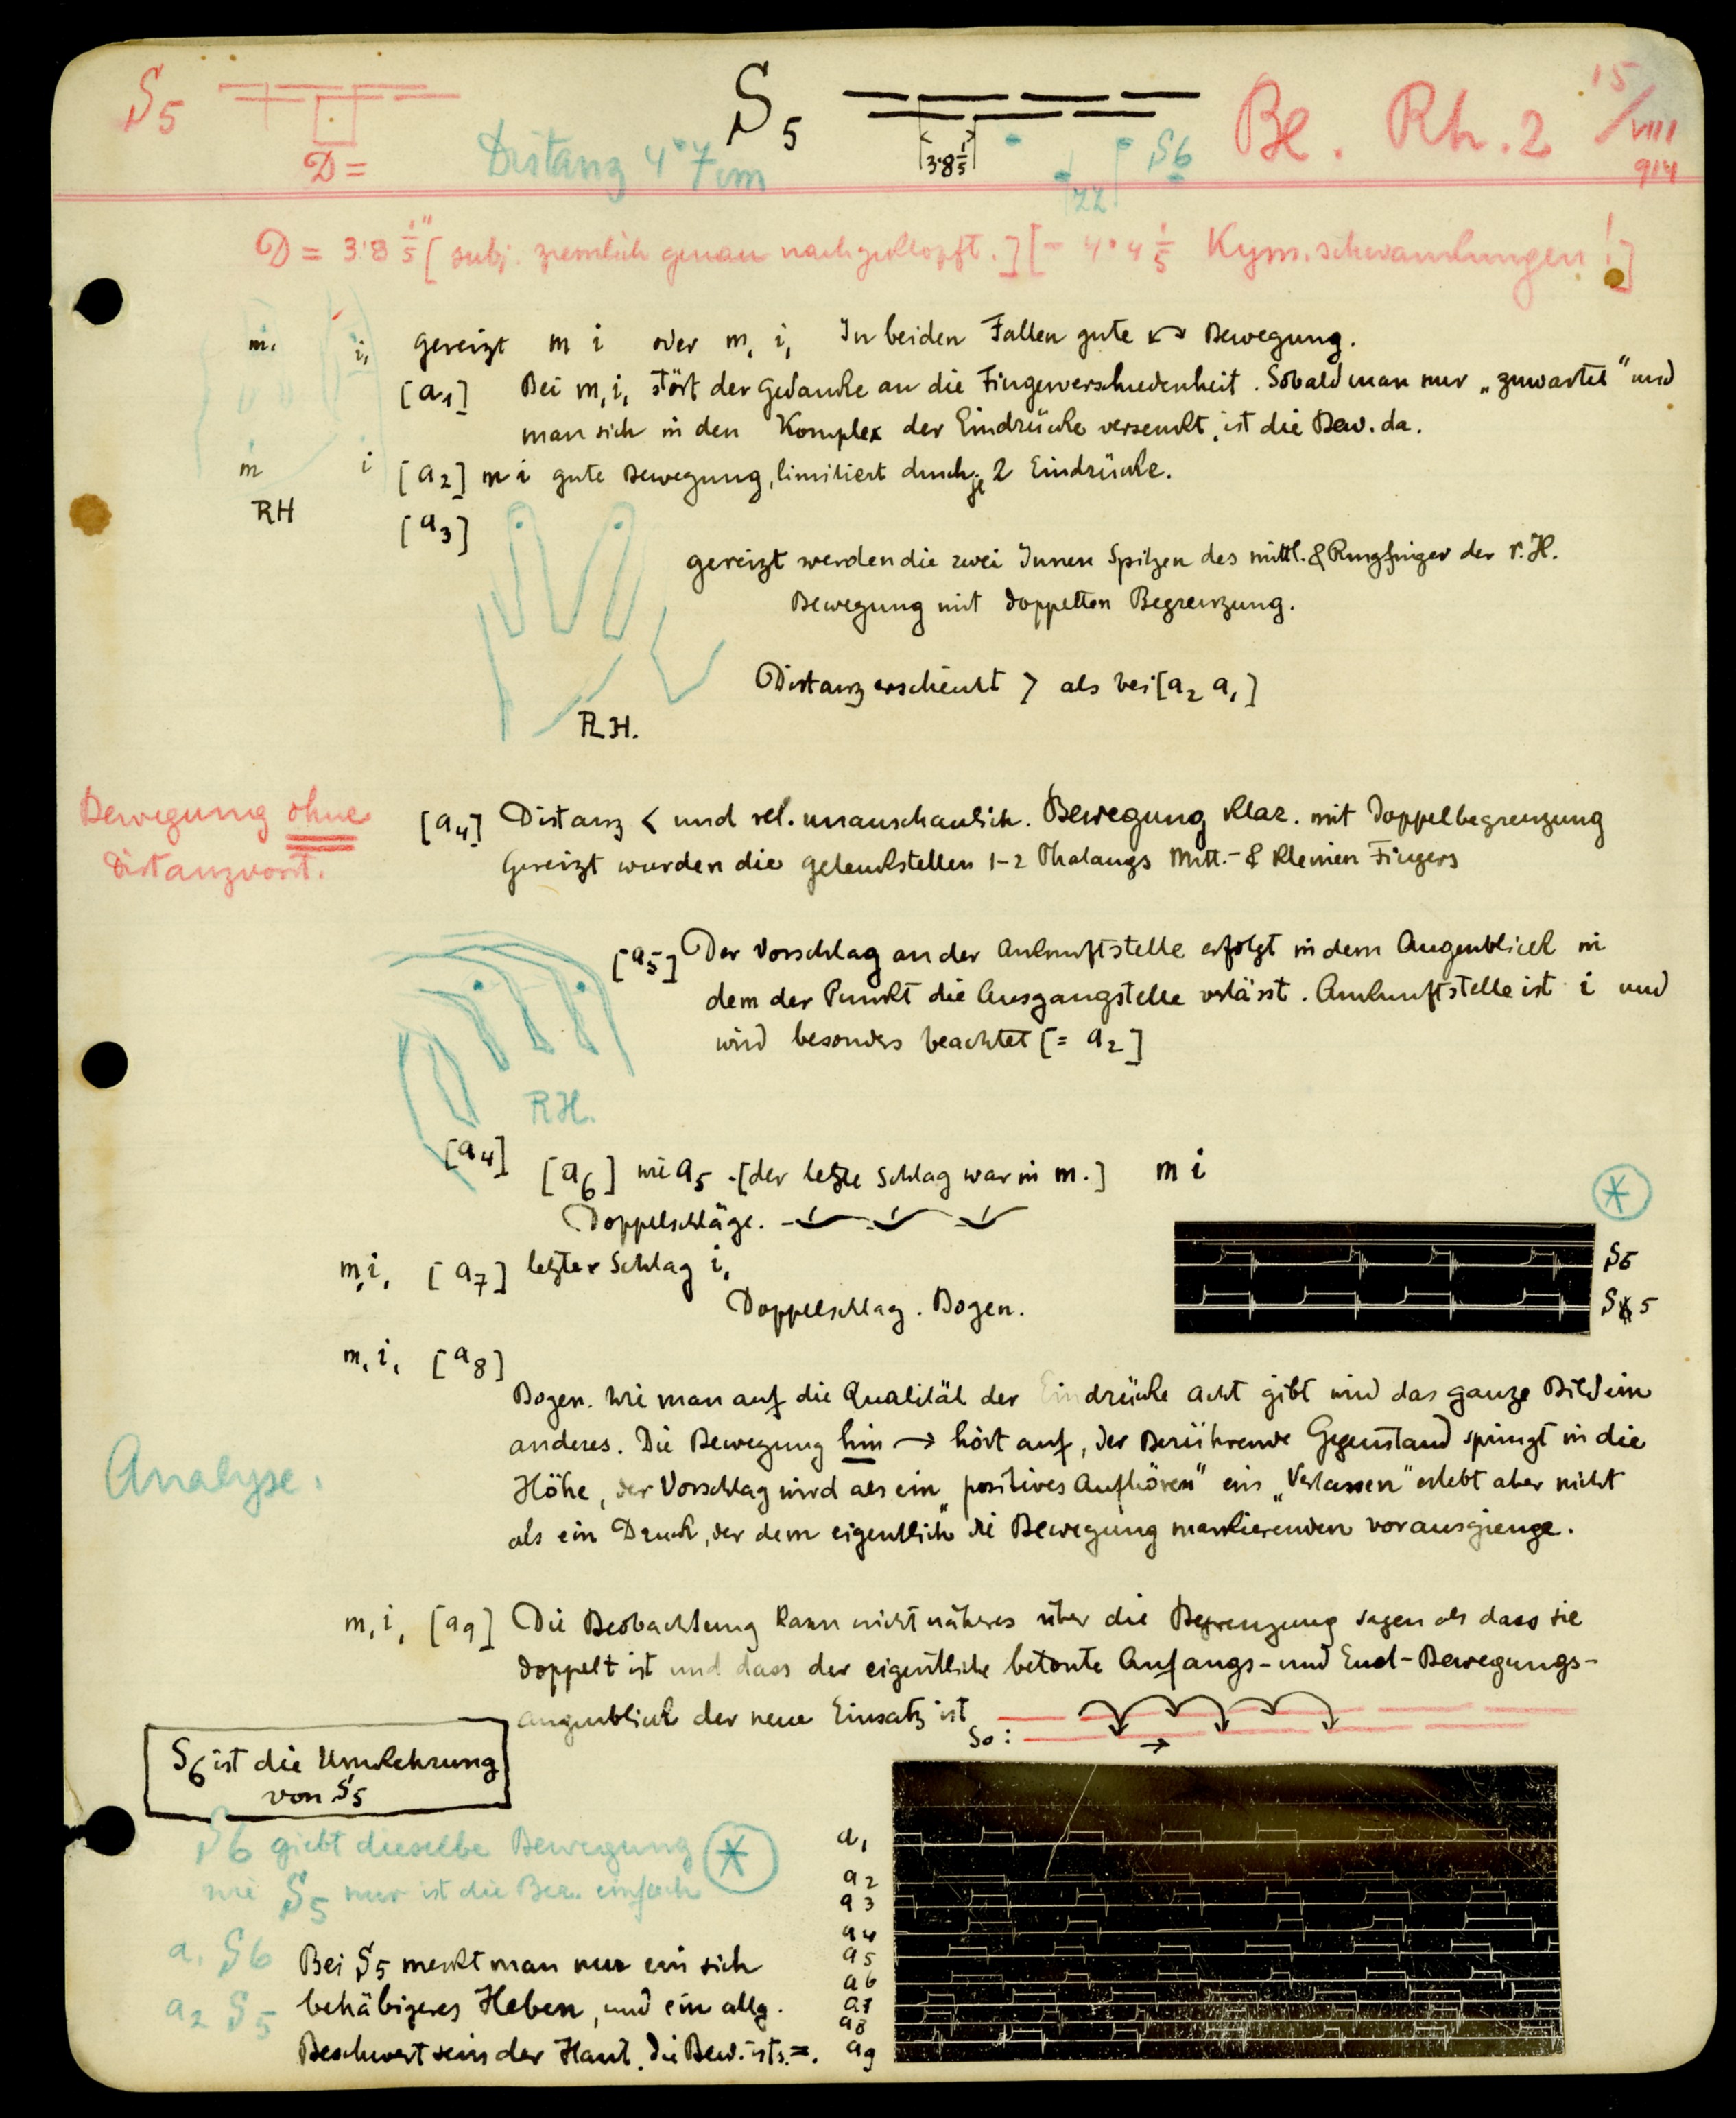 S5 D=
Distanz 4·7 cm
S5
3·8 1/5
S6
22
Be. Rh. 2 15/VIII 914
D = 3·8 1/5" [subj. ziemlich genau nachgeklopft.] [- 4·4 1/5 Kym. schwankungen!]
m, i, gereizt m i oder m, i, In beiden Fallen gute ↔ Bewegung.
[a1] Bei m, i, stört der Gedanke an die Fingerverschiedenheit. Sobald man nur „zuwartet" und
man sich in den Komplex der Eindrücke versenkt, ist die Bew. da.
m i [a2] m i gute Bewegung, limitiert durch je 2 Eindrücke.
RH
[a3]
gereizt werden die zwei Innen Spitzen des mittl. & Ringfinger der r. H.
Bewegung mit doppelten Begrenzung.
Distanz erscheint > als bei [a2 a1]
R.H.
Bewegung ohne
Distanzvorst.
[a4] Distanz < und rel. unanschaulich. Bewegung klar. mit Doppelbegrenzung
Gereizt wurden die Gelenkstellen 1-2 Phalangs Mitt.- & kleinen Fingers
[a5] Der Vorschlag an der Ankunftstelle erfolgt in dem Augenblick in
dem der Punkt die Ausgangstelle verlässt. Ankunftstelle ist i und
wird besonders beachtet [= a2]
RH.
[a4]
[a6] wie a5 - [der letzte Schlag war in m.] m i
Doppelschläge.
m, i, [a7] letzter Schlag i,
Doppelschlag. Bogen.
*
S6
S5
m, i, [a8]
Bogen. Wie man auf die Qualität der Eindrücke acht gibt wird das ganze Bild ein
anderes. Die Bewegung hin → hört auf, der Berührende Gegenstand springt in die
Höhe, der Vorschlag wird als ein „positives Aufhören" ein „Verlassen" erlebt aber nicht
als ein Druck, der dem eigentlich die Bewegung markierenden vorausgienge.
Analyse.
m, i, [a9] Die Beobachtung kann nicht näheres über die Begrenzung sagen als dass sie
doppelt ist und dass der eigentliche betonte Anfangs- und End-Bewegungs-
augenblick der neue Einsatz ist
so: →
S6 ist die Umkehrung
von S5
S6 giebt dieselbe Bewegung *
wie S5 nur ist die Bew. einfach
a1 S6
a2 S5
Bei S5 merkt man nur ein sich
behäbigeres Heben, und ein allg.
Beschwert sein der Haut. die Bew. ists. =.
a1
a2
a3
a4
a5
a6
a7
a8
a9